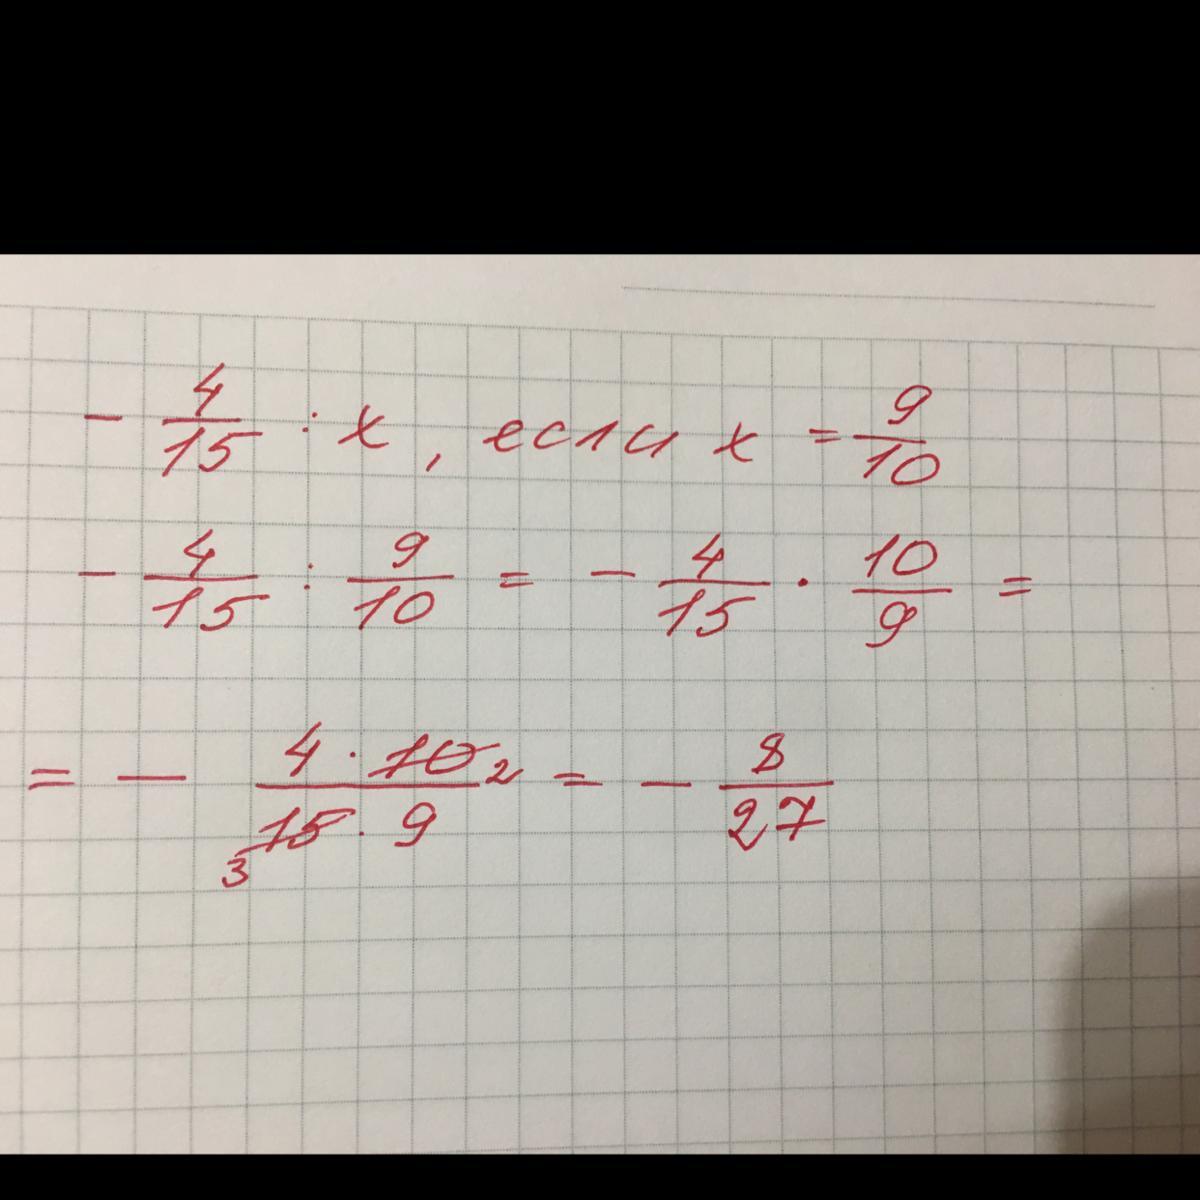 - 4/15 : x , если x = 9/10
- 4/15 : 9/10 = - 4/15 · 10/9 =
= - 4 · 10 2 / 3 15 · 9 = - 8/27